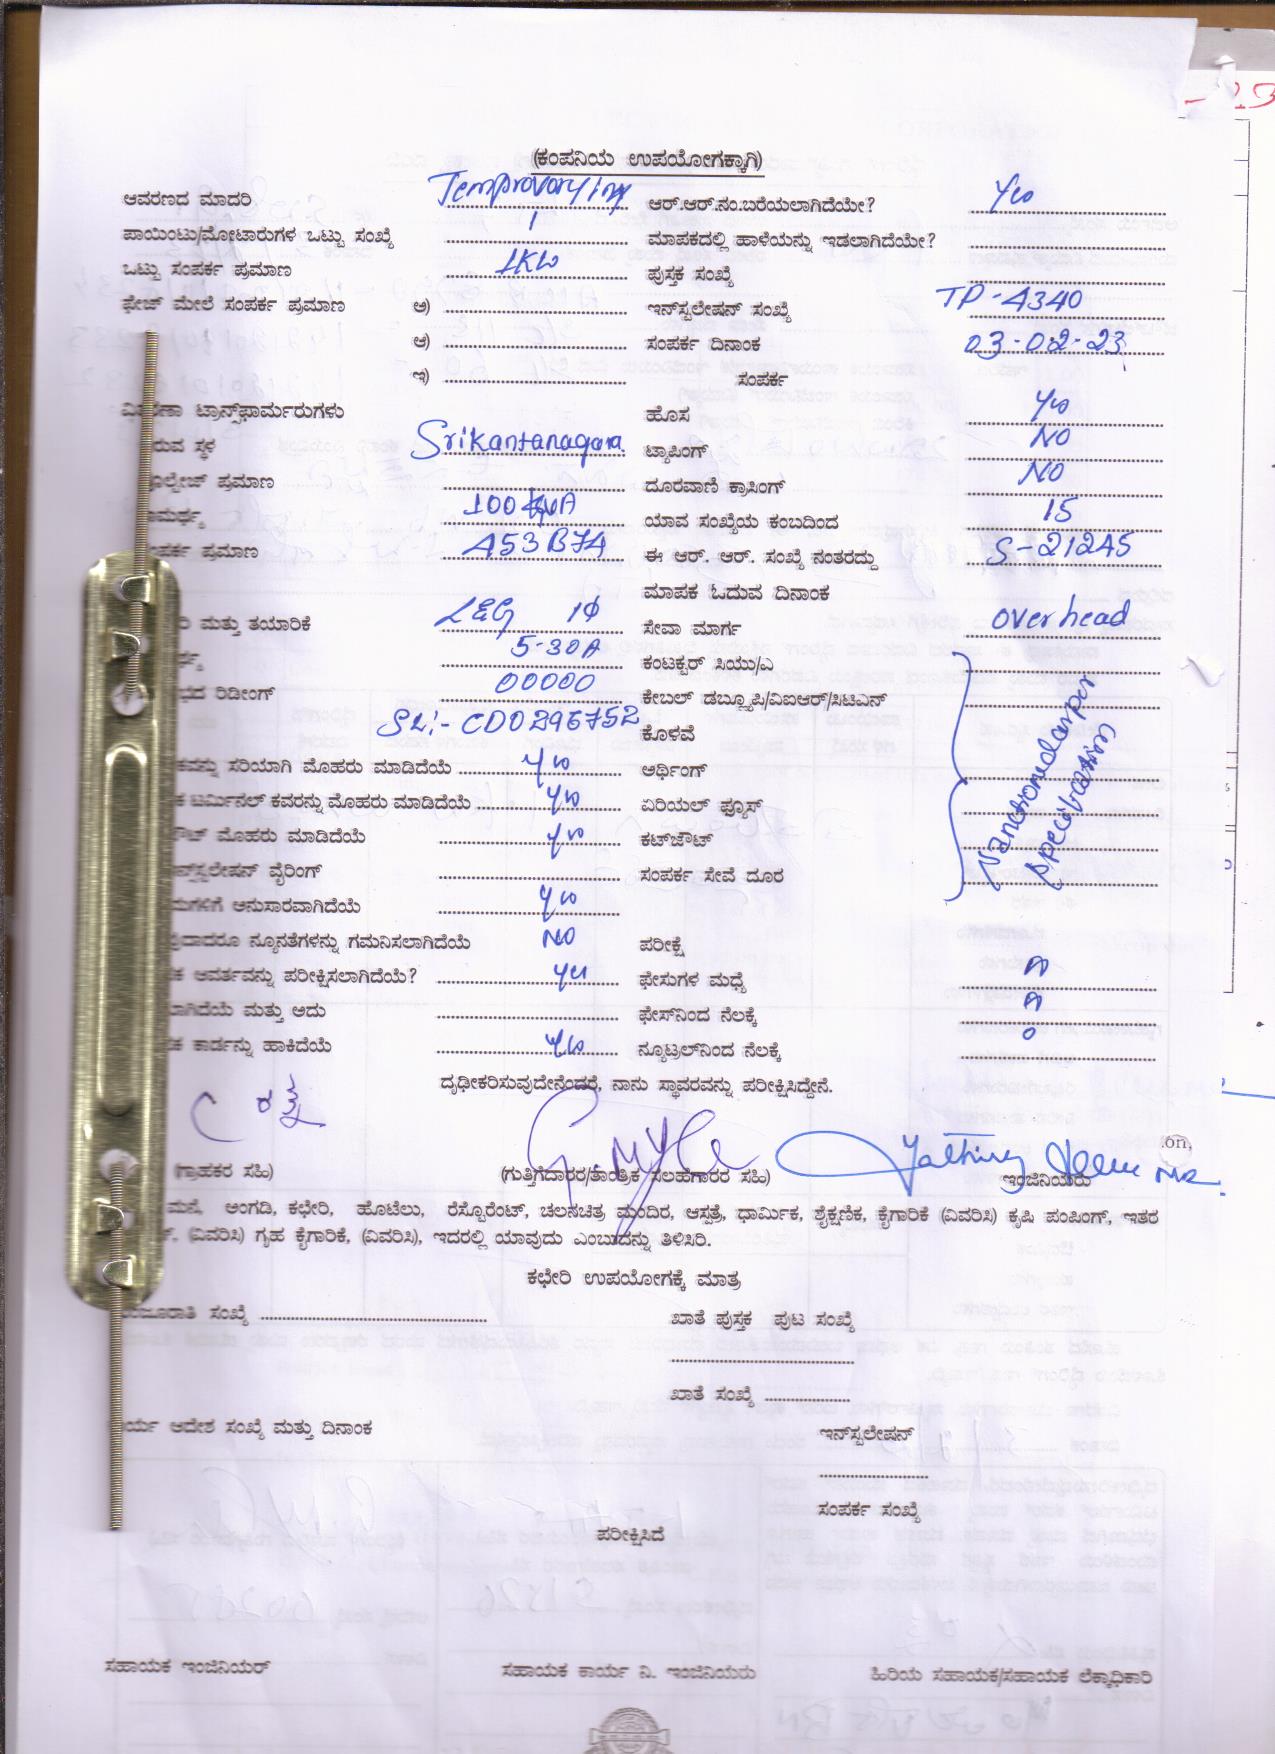 - 23
(ಕಂಪನಿಯ ಉಪಯೋಗಕ್ಕಾಗಿ)
ಆವರಣದ ಮಾದರಿ Temprovory ಆರ್.ಆರ್.ನಂ.ಬರೆಯಲಾಗಿದೆಯೇ? Yes
ಪಾಯಿಂಟು/ಮೋಟಾರುಗಳ ಒಟ್ಟು ಸಂಖ್ಯೆ 1 ಮಾಪಕದಲ್ಲಿ ಹಾಳೆಯನ್ನು ಇಡಲಾಗಿದೆಯೇ?
ಒಟ್ಟು ಸಂಪರ್ಕ ಪ್ರಮಾಣ 1KW ಪುಸ್ತಕ ಸಂಖ್ಯೆ
ಫೇಜ್ ಮೇಲೆ ಸಂಪರ್ಕ ಪ್ರಮಾಣ ಅ) ಇನ್‌ಸ್ಟಲೇಷನ್ ಸಂಖ್ಯೆ TP-4340
ಆ) ಸಂಪರ್ಕ ದಿನಾಂಕ 03-02-23
ಇ) ಸಂಪರ್ಕ
ಟ್ರಾನ್ಸ್‌ಫಾರ್ಮರುಗಳು ಹೊಸ Yes
ರುವ ಸ್ಥಳ Srikantanagara ಟ್ಯಾಪಿಂಗ್ NO
ಪ್ರಮಾಣ ದೂರವಾಣಿ ಕ್ರಾಸಿಂಗ್ NO
100 KVA ಯಾವ ಸಂಖ್ಯೆಯ ಕಂಬದಿಂದ 15
ಪ್ರಮಾಣ A53B74 ಈ ಆರ್. ಆರ್. ಸಂಖ್ಯೆ ನಂತರದ್ದು S-21245
ಮಾಪಕ ಓದುವ ದಿನಾಂಕ
ರಿ ಮತ್ತು ತಯಾರಿಕೆ L&G 1Φ ಸೇವಾ ಮಾರ್ಗ over head
5-30A ಕಂಟಕ್ಟರ್ ಸಿಯು/ಎ
ರಿಡೀಂಗ್ 00000 ಕೇಬಲ್ ಡಬ್ಲ್ಯೂಪಿ/ವಿಐಆರ್/ಸಿಟಿಎನ್
SL:- CD0296752 ಕೊಳವೆ
ಸರಿಯಾಗಿ ಮೊಹರು ಮಾಡಿದೆಯೆ Yes ಅರ್ಥಿಂಗ್
ಟರ್ಮಿನಲ್ ಕವರನ್ನು ಮೊಹರು ಮಾಡಿದೆಯೆ Yes ಏರಿಯಲ್ ಫ್ಯೂಸ್
ಮೊಹರು ಮಾಡಿದೆಯೆ Yes ಕಟ್‌ಔಟ್
ವೈರಿಂಗ್ ಸಂಪರ್ಕ ಸೇವೆ ದೂರ
ಅನುಸಾರವಾಗಿದೆಯೆ Yes
ನ್ಯೂನತೆಗಳನ್ನು ಗಮನಿಸಲಾಗಿದೆಯೆ NO ಪರೀಕ್ಷೆ
ಆವರ್ತವನ್ನು ಪರೀಕ್ಷಿಸಲಾಗಿದೆಯೆ? Yes ಫೇಸುಗಳ ಮಧ್ಯೆ
ಮತ್ತು ಅದು ಫೇಸ್‌ನಿಂದ ನೆಲಕ್ಕೆ
ಕಾರ್ಡನ್ನು ಹಾಕಿದೆಯೆ Yes ನ್ಯೂಟ್ರಲ್‌ನಿಂದ ನೆಲಕ್ಕೆ 0
ದೃಢೀಕರಿಸುವುದೇನೆಂದರೆ, ನಾನು ಸ್ಥಾವರವನ್ನು ಪರೀಕ್ಷಿಸಿದ್ದೇನೆ.
(ಗ್ರಾಹಕರ ಸಹಿ) (ಗುತ್ತಿಗೆದಾರರ/ತಾಂತ್ರಿಕ ಸಲಹೆಗಾರರ ಸಹಿ) ಇಂಜಿನಿಯರು
ಮನೆ, ಅಂಗಡಿ, ಕಛೇರಿ, ಹೊಟೆಲು, ರೆಸ್ಟೊರೆಂಟ್, ಚಲನಚಿತ್ರ ಮಂದಿರ, ಆಸ್ಪತ್ರೆ, ಧಾರ್ಮಿಕ, ಶೈಕ್ಷಣಿಕ, ಕೈಗಾರಿಕೆ (ವಿವರಿಸಿ) ಕೃಷಿ ಪಂಪಿಂಗ್, ಇತರ
(ವಿವರಿಸಿ) ಗೃಹ ಕೈಗಾರಿಕೆ, (ವಿವರಿಸಿ), ಇದರಲ್ಲಿ ಯಾವುದು ಎಂಬುದನ್ನು ತಿಳಿಸಿರಿ.
ಕಛೇರಿ ಉಪಯೋಗಕ್ಕೆ ಮಾತ್ರ
ಸಂಖ್ಯೆ ಖಾತೆ ಪುಸ್ತಕ ಪುಟ ಸಂಖ್ಯೆ
ಖಾತೆ ಸಂಖ್ಯೆ
ಆದೇಶ ಸಂಖ್ಯೆ ಮತ್ತು ದಿನಾಂಕ ಇನ್‌ಸ್ಟಲೇಷನ್
ಸಂಪರ್ಕ ಸಂಖ್ಯೆ
ಪರೀಕ್ಷಿಸಿದೆ
ಸಹಾಯಕ ಇಂಜಿನಿಯರ್ ಸಹಾಯಕ ಕಾರ್ಯ ನಿ. ಇಂಜಿನಿಯರು ಹಿರಿಯ ಸಹಾಯಕ/ಸಹಾಯಕ ಲೆಕ್ಕಾಧಿಕಾರಿ